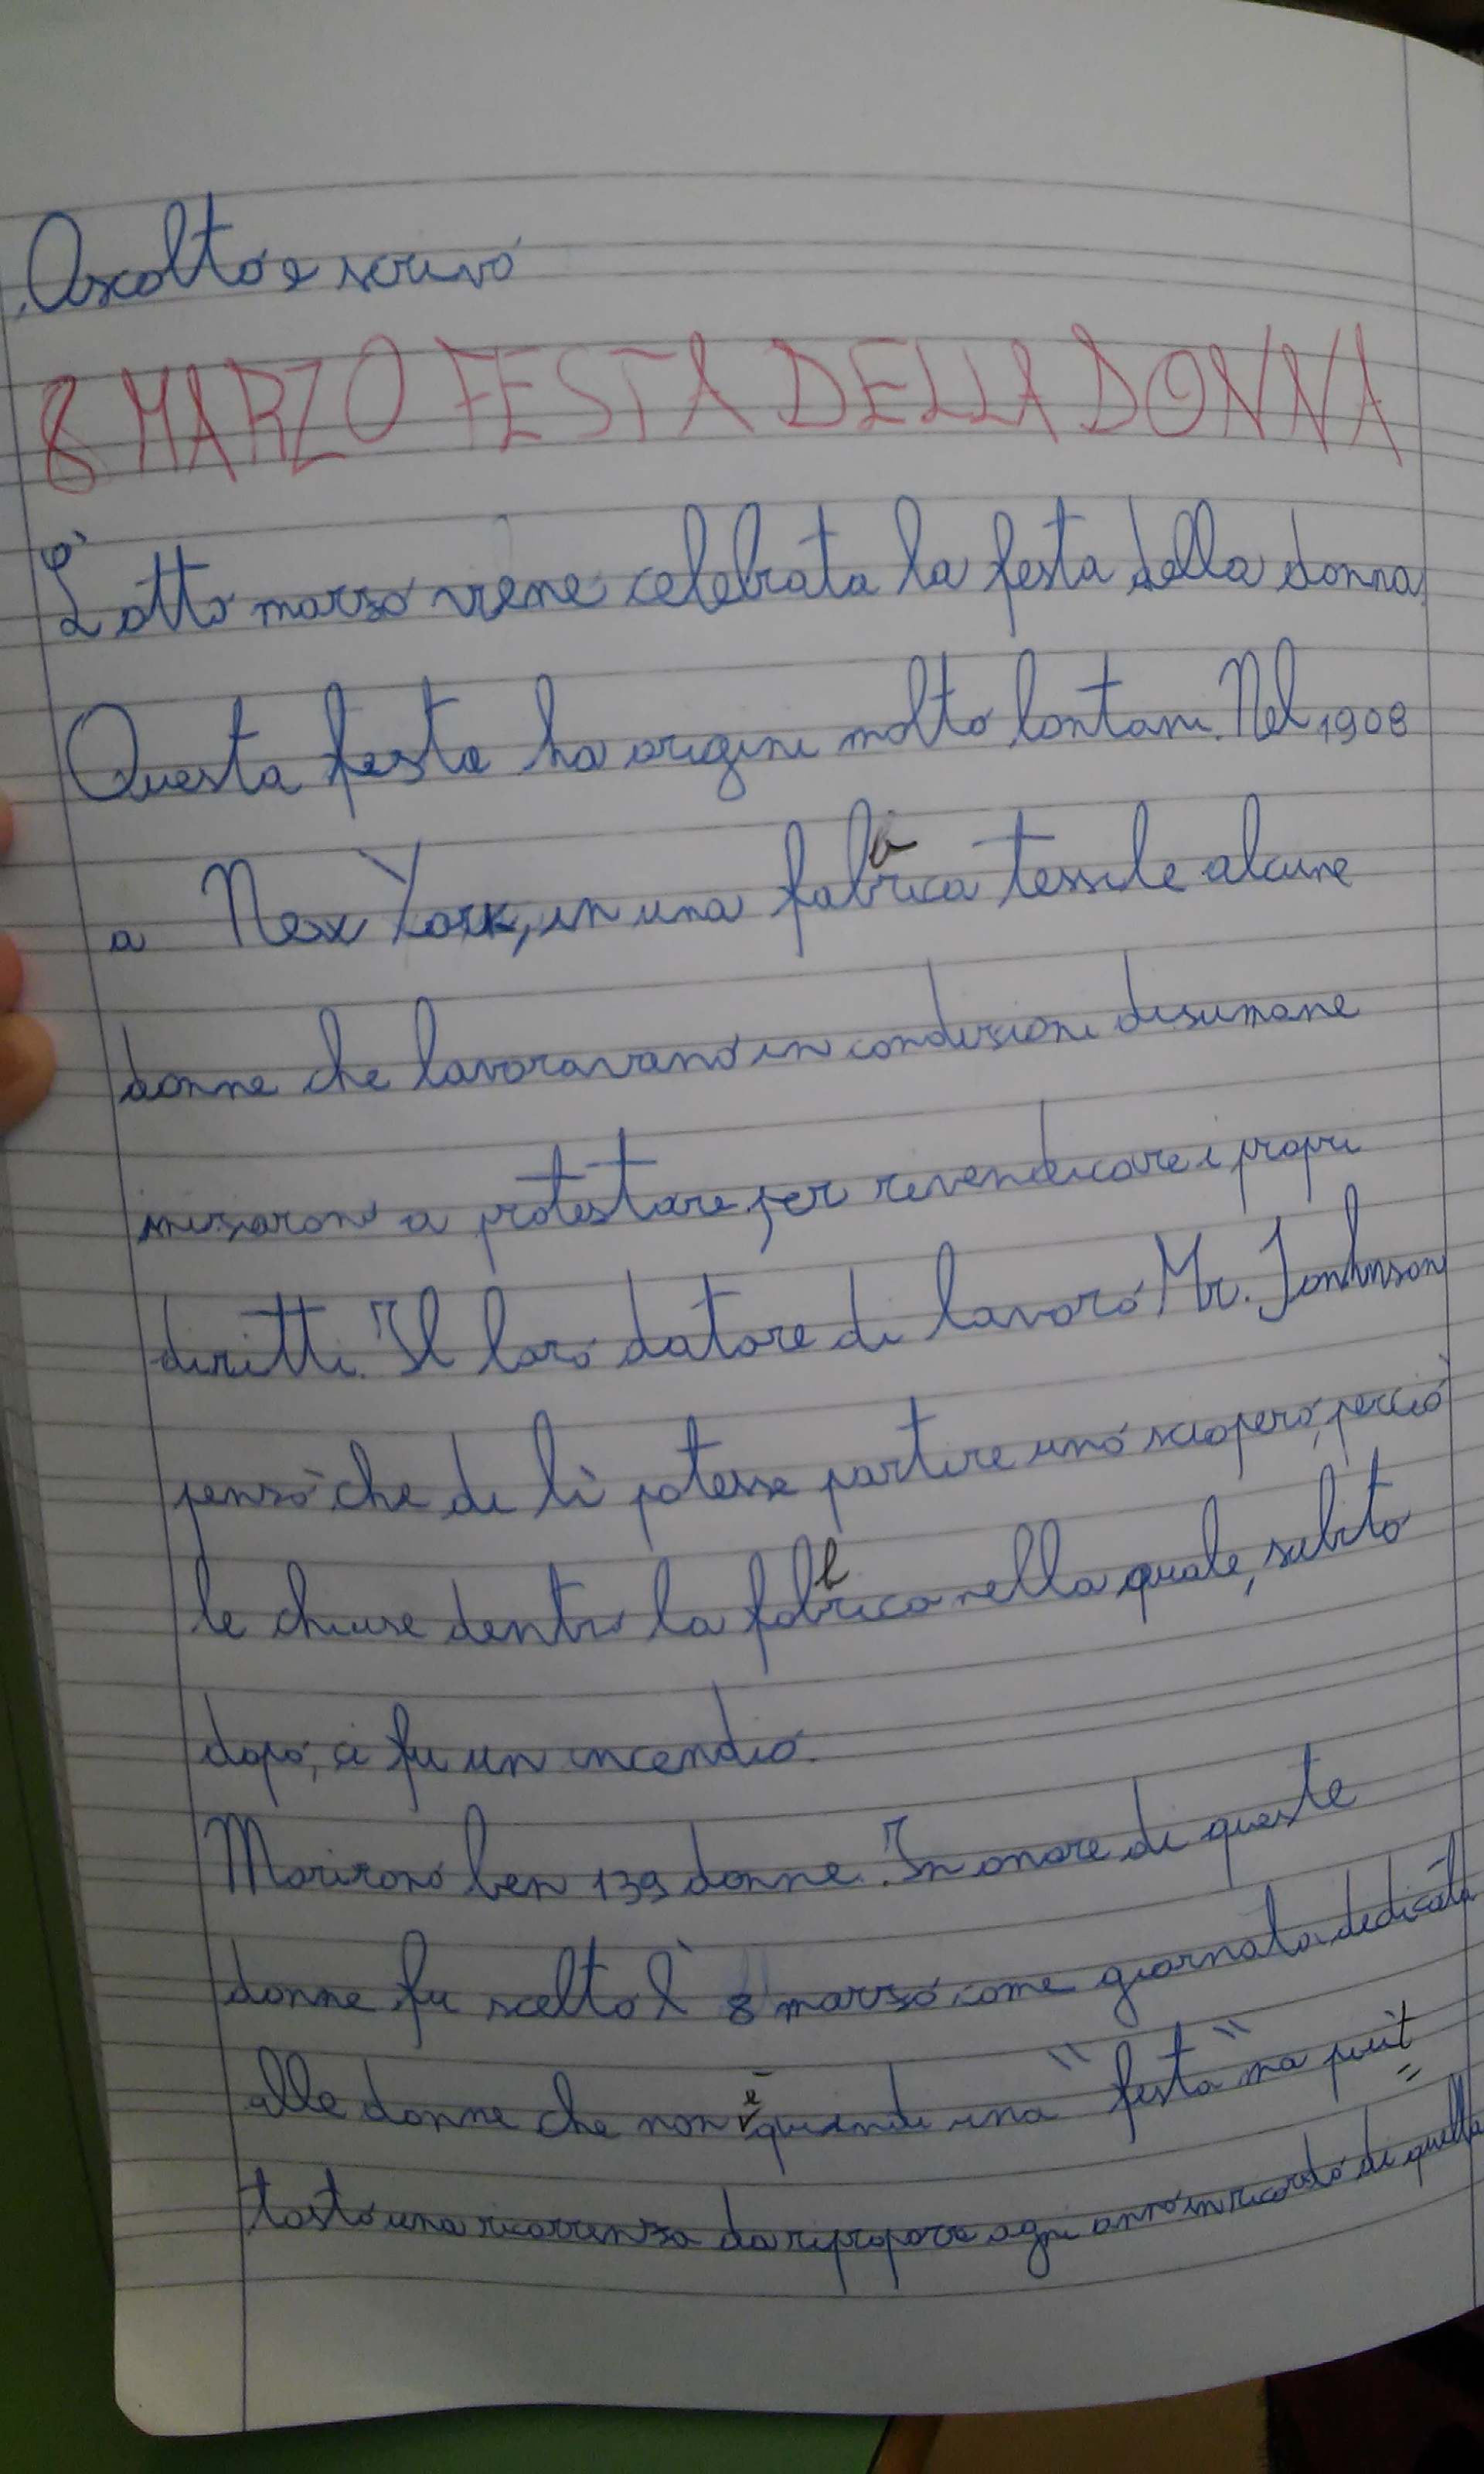 Ascolto e scrivo
8 MARZO FESTA DELLA DONNA
L'otto marzo viene celebrata la festa della donna.
Questa festa ha origini molto lontani. Nel 1908
a New York, in una fabbrica tessile alcune
donne che lavoravano in condizioni disumane
iniziarono a protestare per rivendicare i propri
diritti. Il loro datore di lavoro Mr. Jonhnson
pensò che di lì potesse partire uno sciopero, perciò
le chiuse dentro la fabbrica nella quale, subito
dopo, ci fu un incendio.
Morirono ben 139 donne. In onore di queste
donne fu scelto l' 8 marzo come giornata dedicata
alle donne che non è quindi una "festa" ma piut
tosto una ricorrenza da riproporre ogni anno in ricordo di quella